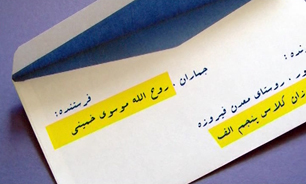 فرستنده:
جماران . روح الله موسوی خمینی
نده:
ور . روستای معدن فیروزه
زان کلاس پنجم الف